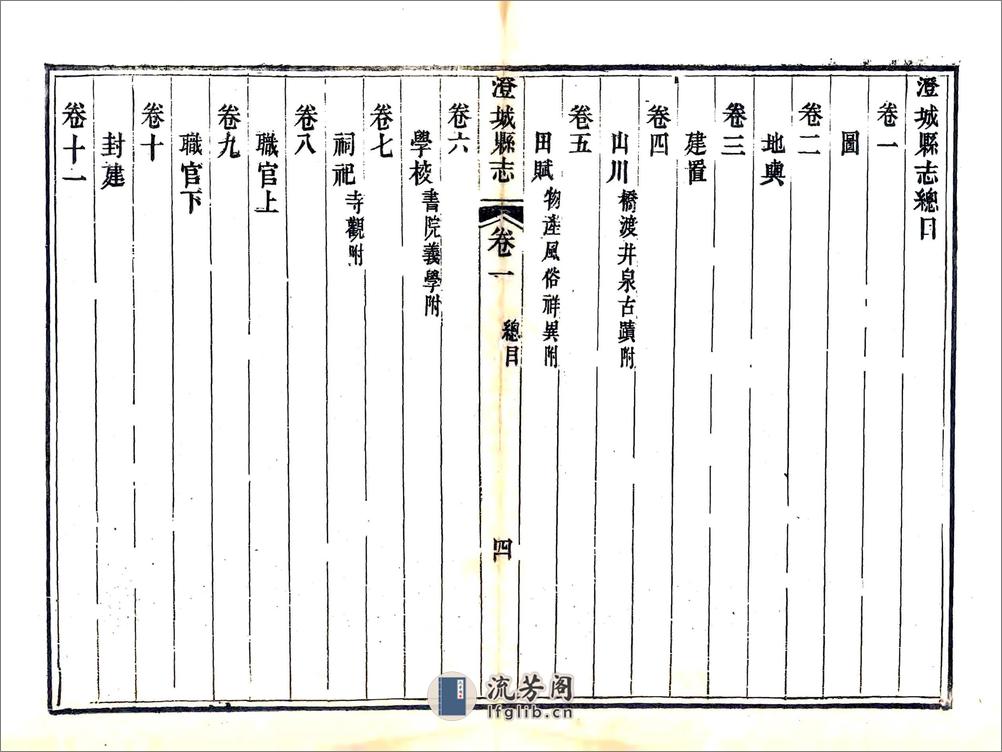 澄城縣志總目
卷一
圖
卷二
地輿
卷三
建置
卷四
山川 橋渡井泉古蹟附
卷五
田賦 物產風俗祥異附
澄城縣志 卷一 總目 四
卷六
學校 書院義學附
卷七
祠祀 寺觀附
卷八
職官上
卷九
職官下
卷十
封建
卷十一
流芳阁
lfglib.cn